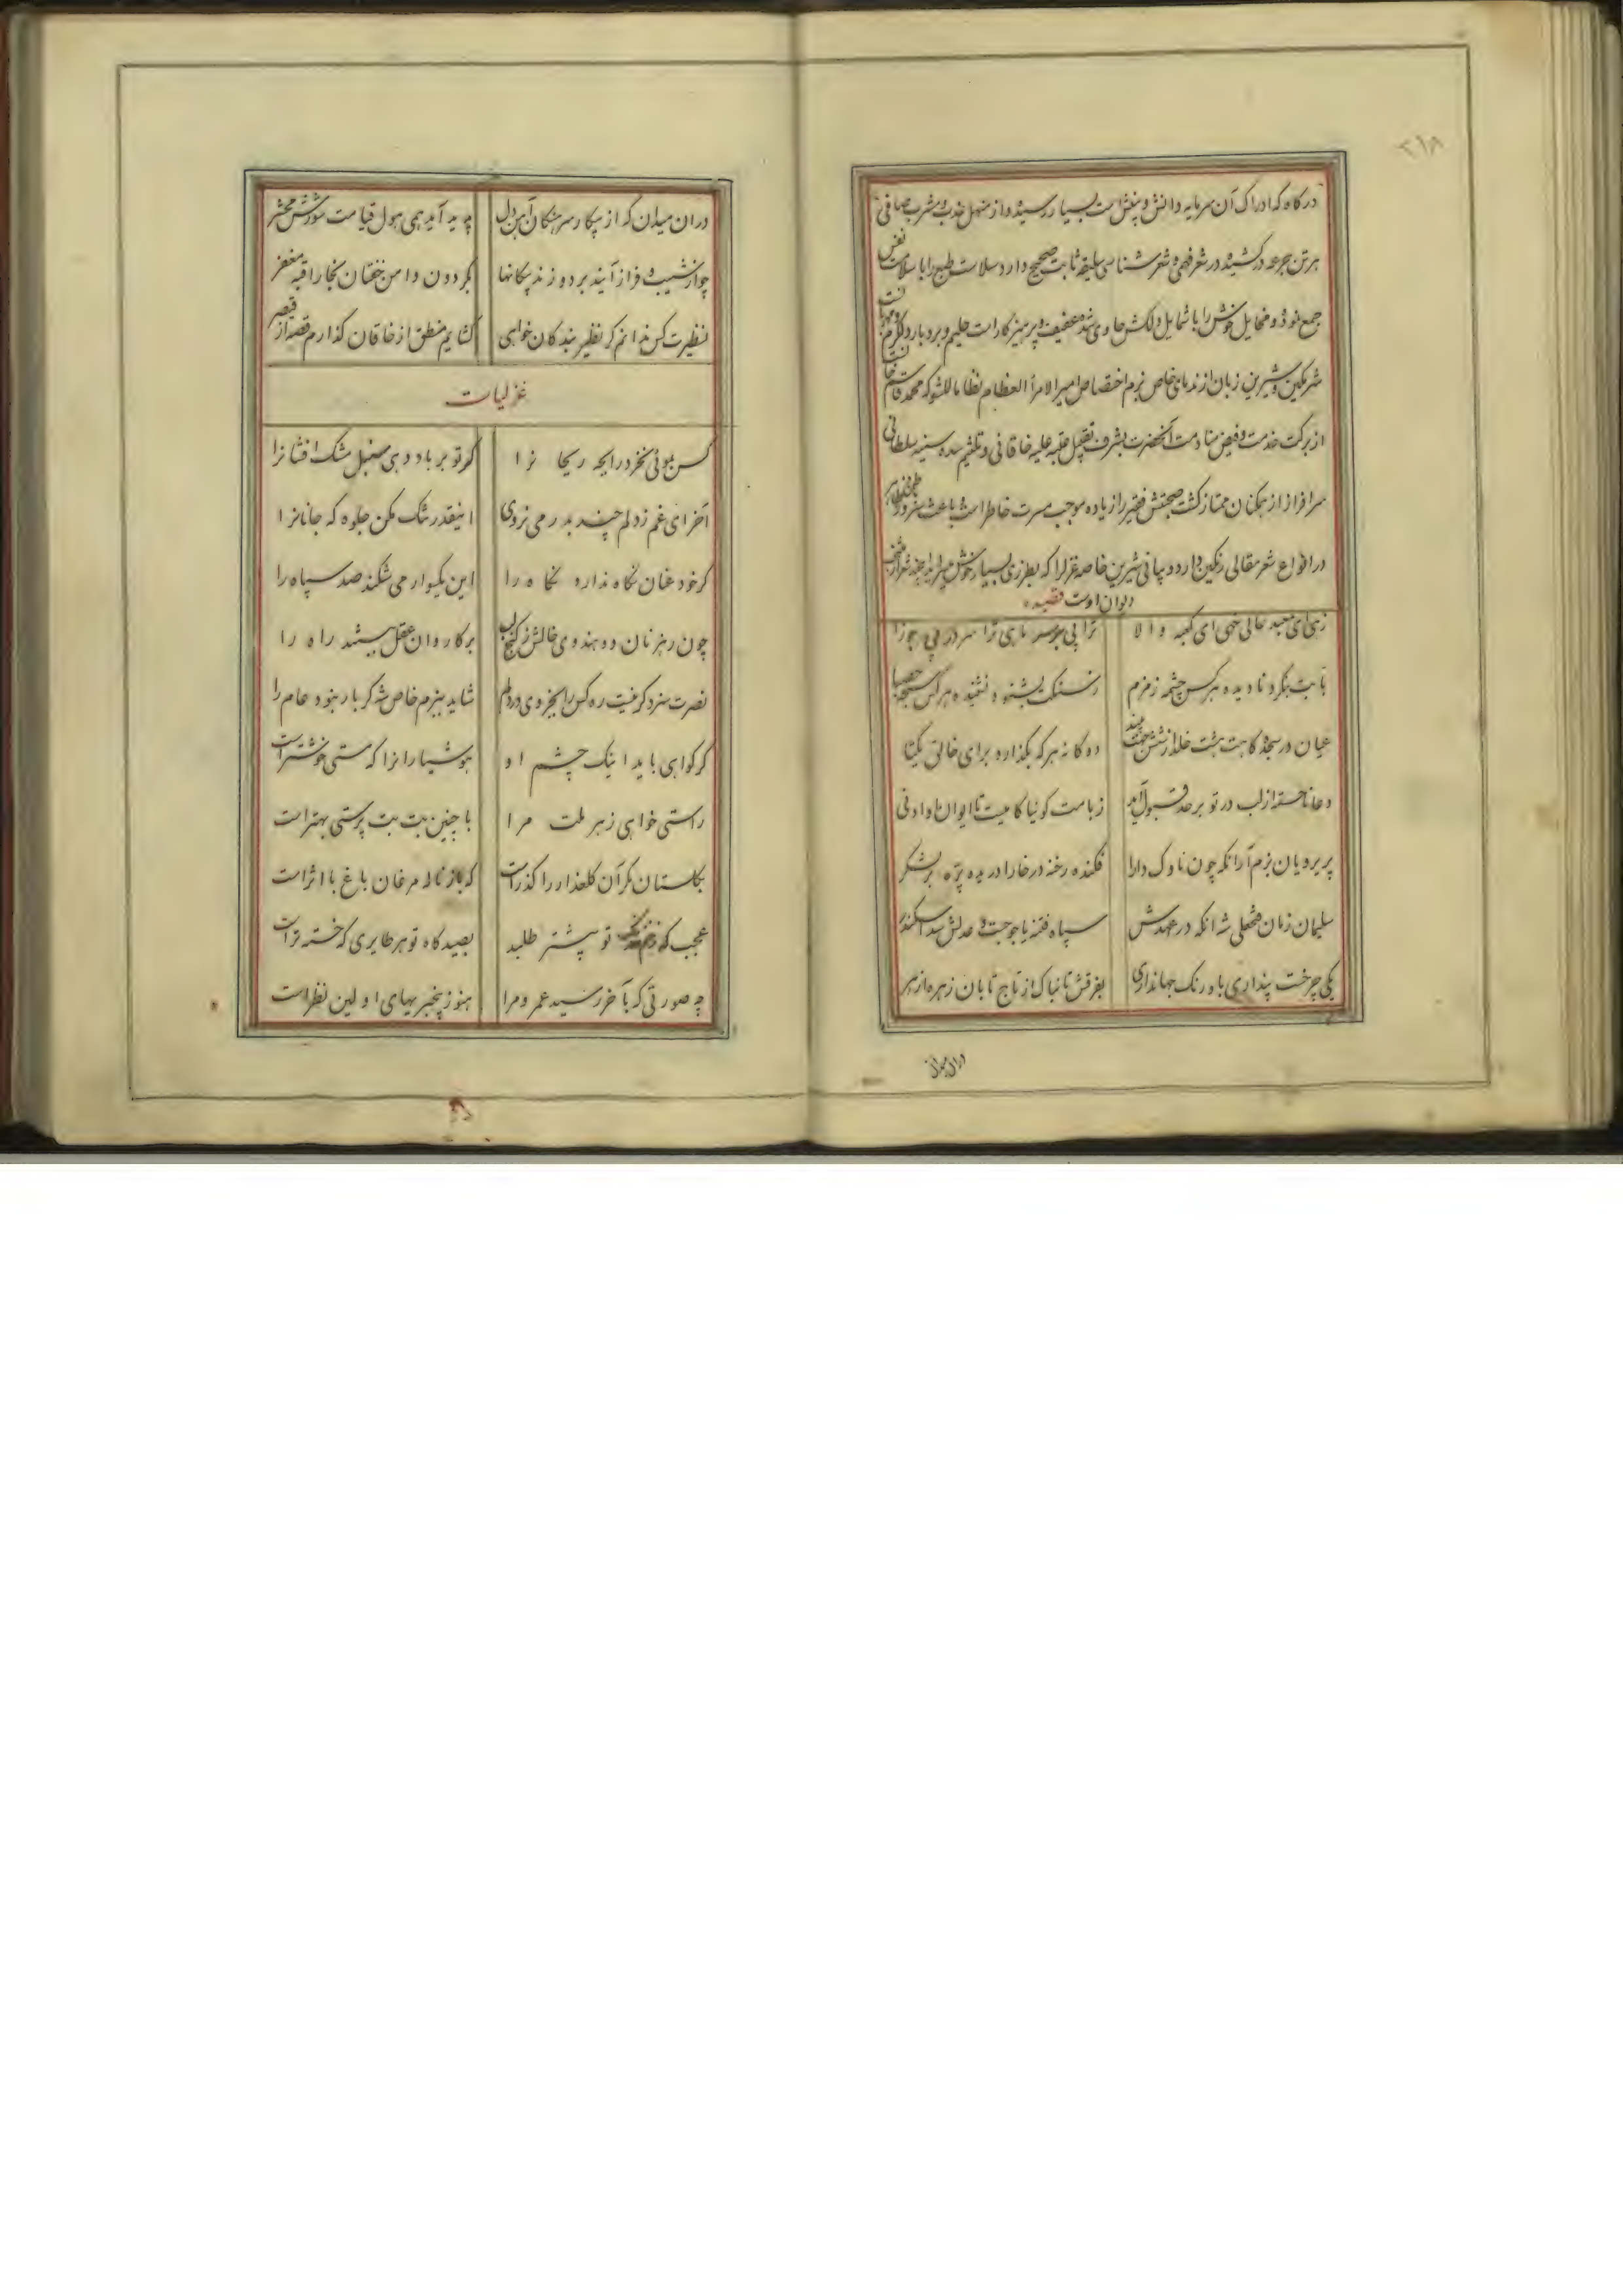 ۲۱۸
درکاه که ادراک آن سرمایه دانش و بینش است بسیار رسیده و از منهل عذب و مشرب صافی
هر تن جرعه درکشیده در شعر فهمی و شعر شناسی سلیقه ثابت صحیح دارد سلامت طبع را با سلامت نفس
جمع نموده و مخایل خوش را با شمایل دلکش حاوی شده عفیف و پرهیزکار است حلیم و بردبار
شرمکین و شیرین زبان از ندمای خاص بزم اختصاص امیر الامرأ العظام نظاما للشوکه محمد قاسم خان است
از برکت خدمت و فیض منادمت آنحضرت بشرف تقبیل عتبه علیه خاقانی و تلثیم سده سنیه سلطانی
سرافراز از همکنان ممتاز کشت صحبتش فقیر را زیاده موجب مسرت خاطر است و باعث
در انواع شعر مقالی رنکین دارد و بیانی شیرین خاصه غزل را که بطرزی بسیار خوش میسراید این چند شعر از منتخب
دیوان اوست قصیده
زهی ای معبد عالی خهی ای کعبه والا
ترا پی بر سر ماهی ترا سر در پی جوزا
بابت بنکرد نادیده هرکس چشمه زمزم
ز سنکت بشنود نشنیده هرکس سبحه حصبا
عیان در سجده کاهت هشت خلد از شش جهت بیند
دوکانه هرکه بکذارد برای خالق یکتا
دعا ناجسته از لب در تو بر حد قبول آید
ز بامت کوئیا کامیست تا ایوان او ادنی
پریرویان بزم آرا نکه چون ناوک دارا
فکنده رخنه در خارا دریده پرّه بر لشکر
سلیمان زمان فتحعلی شه انکه در عهدش
سپاه فتنه یاجوجست و عدلش سد اسکندر
یکی چرخست پنداری باورنک جهانداری
بفرقش تابناک از تاج تابان زهره ازهر
دران میدان
دران میدان که از پیکار سرهنکان آهن دل
پدید آید همی هول قیامت شورش محشر
چو از شیب و فراز آیند بر دوزند پیکانها
بکردون دامن خفتان بخارا قبه مغفر
نظیرت کس ندانم کر نظیر بندکان خواهی
کشایم منطق از خاقان کذارم قصه از قیصر
غزلیات
کس بموئی نخرد رایحه ریحانرا
کر تو بر باد دهی سنبل مشک افشانرا
آخر ای غم ز دلم چند بدر می نروی
اینقدر تنک مکن جلوه که جانانرا
کر خود عنان نکاه ندارد نکاه را
این یکسوار می شکند صد سپاه را
چون رهزنان دو هندوی خالش ز کنج لب
بر کاروان عقل ببستند راه را
نصرت سزد کر نیست ره کس را بجز وی در دلم
شاید ببزم خاص شه کر بار نبود عام را
کر کواهی باید اینک چشم او
هوشیارانرا که مستی خوشتر است
راستی خواهی ز هر ملت مرا
با چنین بت بت پرستی بهتر است
بکلستان مکر آن کلعذار را کذر است
که باز ناله مرغان باغ با اثر است
عجب که زخم خدنک تو بیشتر طلبد
بصید کاه تو هر طایری که خسته تر است
چه صورتی که بآخر رسید عمر و مرا
هنوز بیخبریهای اولین نظر است